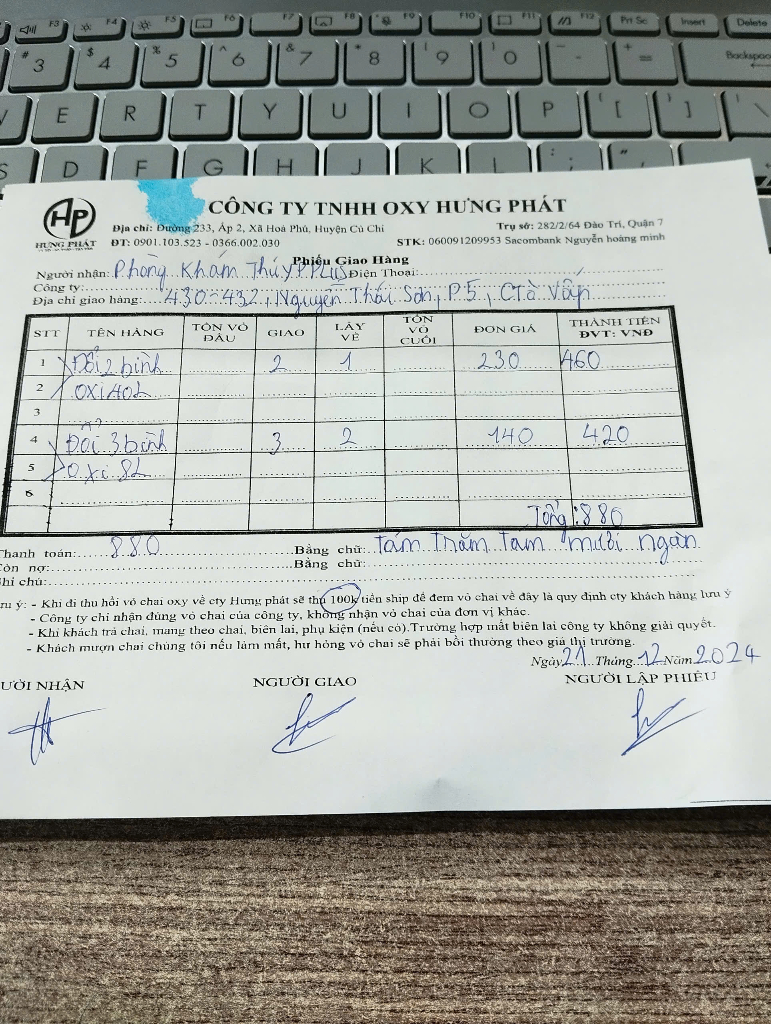 F3 F4 F5 F6 F7 F8 F9 F10 F11 F12 Prt Sc Insert Delete
# 3 $ 4 % 5 ^ 6 & 7 * 8 ( 9 ) 0 _ - + = Backspace
E R T Y U I O P { [ } ] \
S D F G H J K L : ; " '
HP
HƯNG PHÁT
CÔNG TY TNHH OXY HƯNG PHÁT
Địa chỉ: Đường 233, Ấp 2, Xã Hoà Phú, Huyện Củ Chi Trụ sở: 282/2/64 Đào Trí, Quận 7
ĐT: 0901.103.523 - 0366.002.030 STK: 060091209953 Sacombank Nguyễn hoàng minh
Phiếu Giao Hàng
Người nhận: Phòng Khám Thúy PPLUS Điện Thoại:
Công ty:
Địa chỉ giao hàng: 430-432, Nguyễn Thái Sơn, P5, Gò Vấp
STT TÊN HÀNG TỒN VỎ ĐẦU GIAO LẤY VỀ TỒN VỎ CUỐI ĐƠN GIÁ THÀNH TIỀN ĐVT: VNĐ
1 Đổi 2 bình 2 1 230 460
2 OXI 40L
3
4 Đổi 3 bình 3 2 140 420
5 OXI 8L
6
Tổng: 880
Thanh toán: 880 Bằng chữ: Tám trăm tám mươi ngàn
Còn nợ: Bằng chữ:
Ghi chú:
Lưu ý: - Khi đi thu hồi vỏ chai oxy về cty Hưng phát sẽ thu 100k tiền ship để đem vỏ chai về đây là quy định cty khách hàng lưu ý
- Công ty chỉ nhận đúng vỏ chai của công ty, không nhận vỏ chai của đơn vị khác.
- Khi khách trả chai, mang theo chai, biên lai, phụ kiện (nếu có).Trường hợp mất biên lai công ty không giải quyết.
- Khách mượn chai chúng tôi nếu làm mất, hư hỏng vỏ chai sẽ phải bồi thường theo giá thị trường.
Ngày 21 Tháng 12 Năm 2024
NGƯỜI NHẬN NGƯỜI GIAO NGƯỜI LẬP PHIẾU